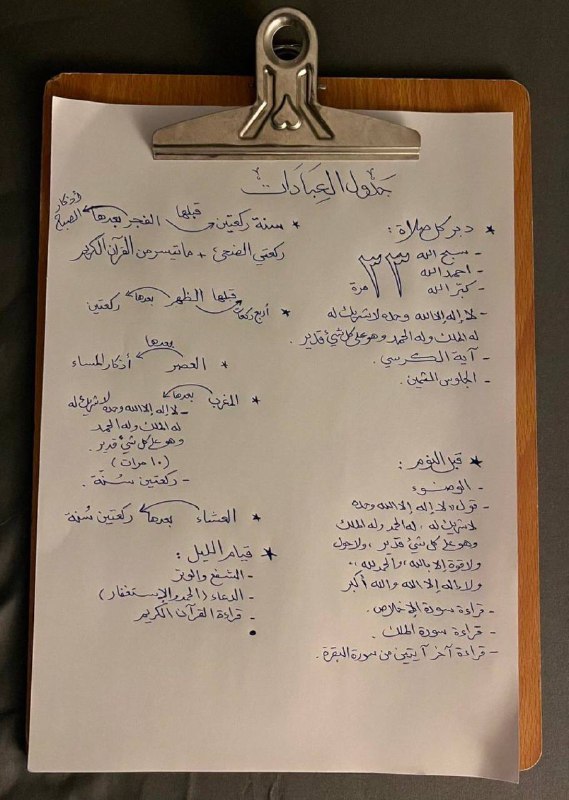 جدول العبادات
* دبر كل صلاة :
- سبح الله
- احمد الله
- كبّر الله
٣٣ مرة
- لا إله إلا الله وحده لا شريك له
له الملك وله الحمد وهو على كل شيء قدير .
- آية الكرسي .
- الجلوس الثمين .
* قبل النوم :
- الوضوء
- قول " لا إله إلا الله وحده
لا شريك له ، له الحمد وله الملك
وهو على كل شيء قدير ، ولا حول
ولا قوة إلا بالله ، والحمدلله ،،
ولا إله إلا الله والله أكبر
- قراءة سورة الإخلاص .
- قراءة سورة الملك .
- قراءة آخر آيتين من سورة البقرة .
* سنة ركعتين قبلها الفجر بعدها أذكار الصباح
ركعتي الضحى + ما تيسر من القرآن الكريم
* أربع ركعات قبلها الظهر بعدها ركعتين
* العصر بعدها أذكار المساء
* المغرب بعدها
- لا إله إلا الله وحده لا شريك له
له الملك وله الحمد
وهو على كل شيء قدير .
( ١٠ مرات )
- ركعتين سُنّة .
* العشاء بعدها ركعتين سُنة
* قيام الليل :
- الشفع والوتر
- الدعاء ( الحمد والإستغفار )
- قراءة القرآن الكريم